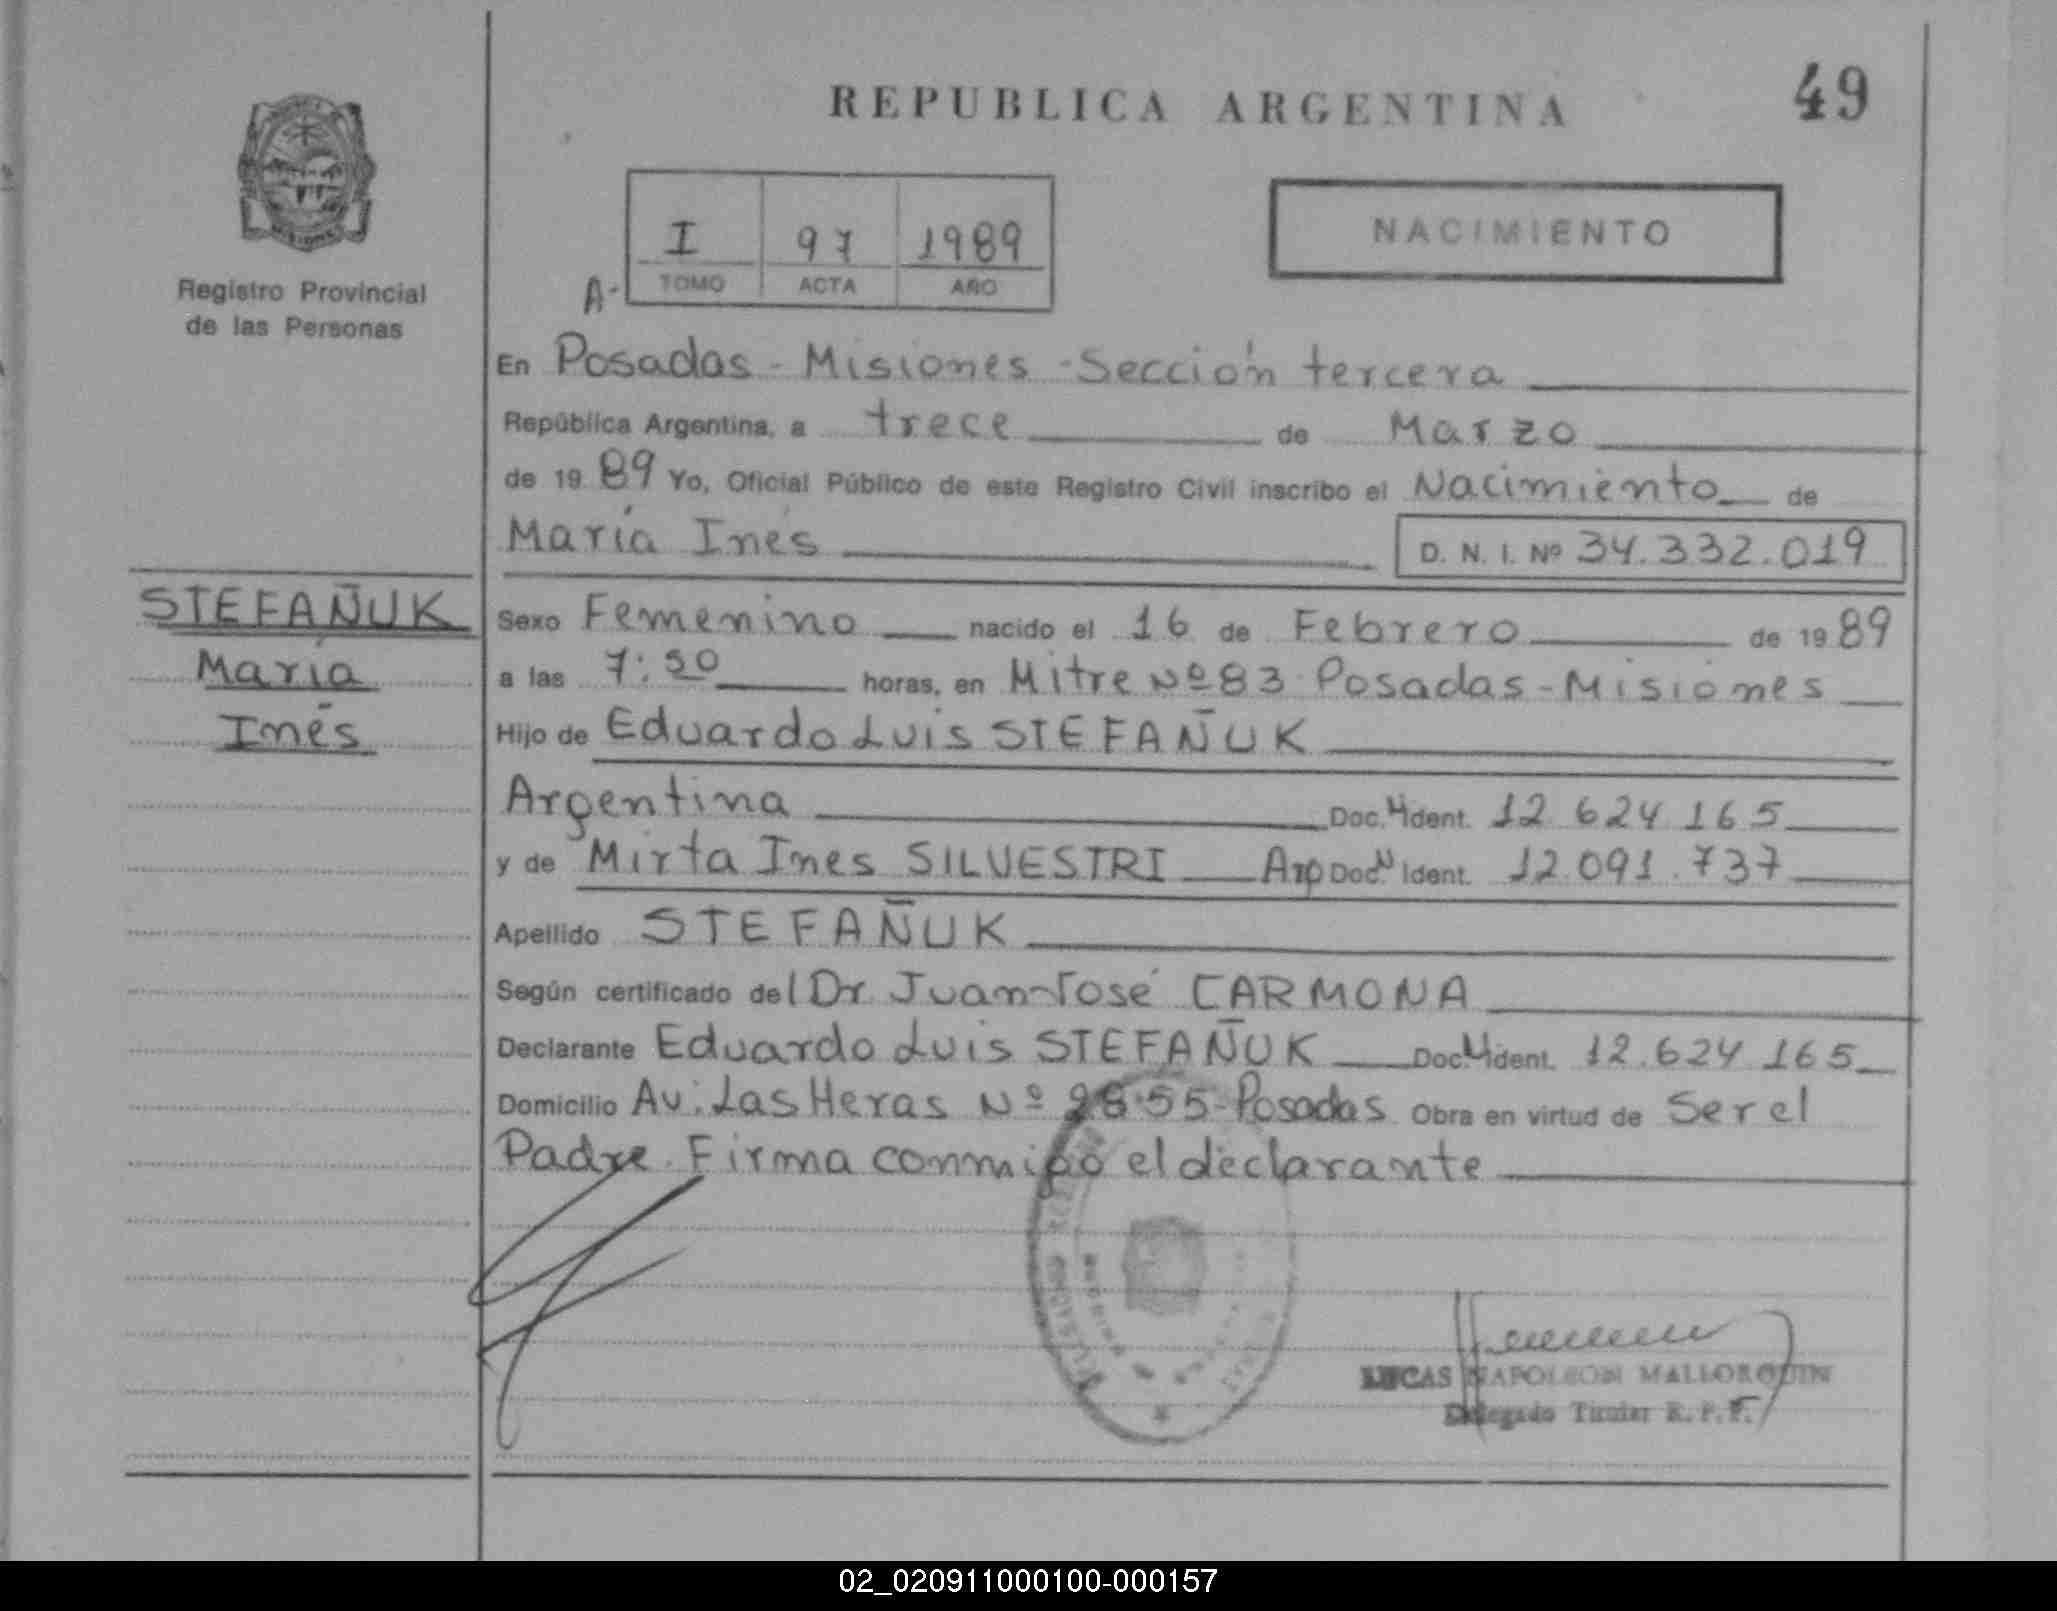 REPUBLICA ARGENTINA
49
I 97 1989
A- TOMO ACTA AÑO
NACIMIENTO
MISIONES
Registro Provincial
de las Personas
En Posadas - Misiones - Sección tercera
República Argentina, a trece de Marzo
de 19 89 Yo, Oficial Público de este Registro Civil inscribo el Nacimiento de
María Inés D. N. I. Nº 34.332.019
STEFAÑUK
María
Inés
Sexo Femenino nacido el 16 de Febrero de 19 89
a las 7:50 horas, en Mitre Nº 83 Posadas - Misiones
Hijo de Eduardo Luis STEFAÑUK
Argentina Doc. Ident. 12 624 165
y de Mirta Ines SILVESTRI Arg Doc. N Ident. 12.091.737
Apellido STEFAÑUK
Según certificado del Dr. Juan José CARMONA
Declarante Eduardo Luis STEFAÑUK Doc. Ident. 12.624 165
Domicilio Av. Las Heras Nº Posadas Obra en virtud de Ser el
Padre. Firma conmigo el declarante
LUCAS NAPOLEON MALLORQUIN
Delegado Titular R. P. P.
02_020911000100-000157